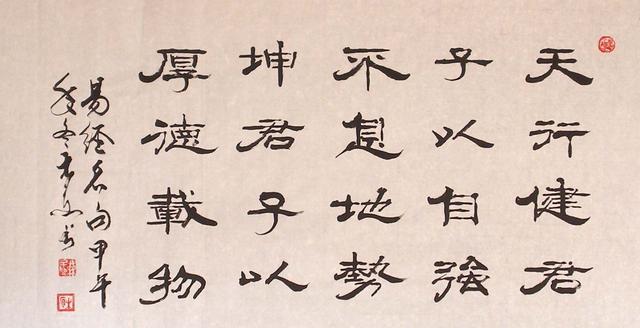 天行健君
子以自強
不息地勢
坤君子以
厚德載物
易經名句甲午